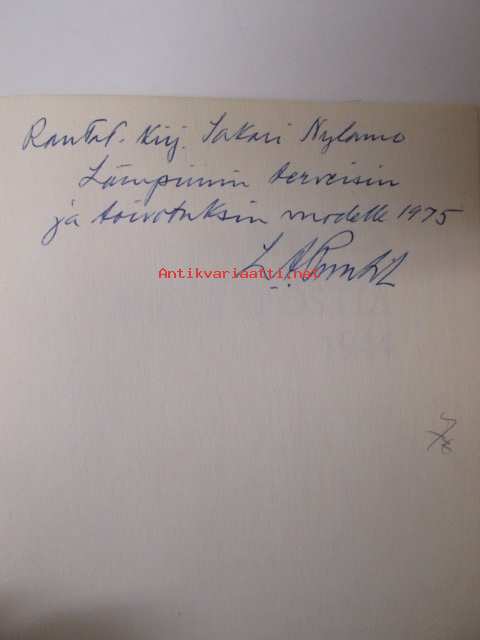 Rautat. Kirj. Sakari Nylamo
Lämpimin terveisin
ja toivotuksin vuodelle 1975
Antikvariaatti.net
1944